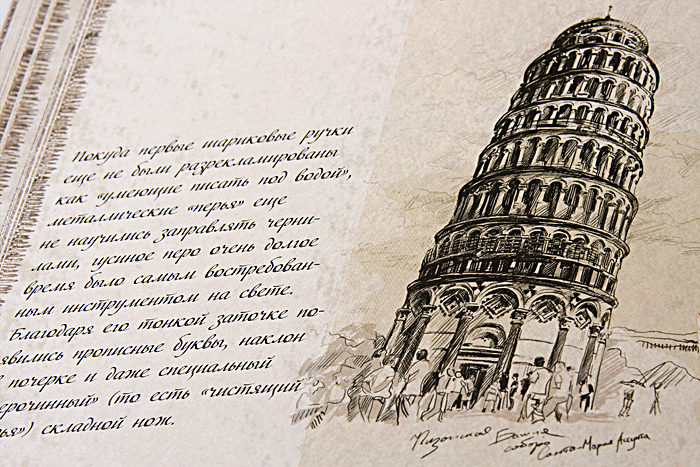 Покуда первые шариковые ручки
еще не были разрекламированы
как «умеющие писать под водой»,
металлические «перья» еще
не научились заправлять черни-
лами, гусиное перо очень долгое
время было самым востребован-
ным инструментом на свете.
Благодаря его тонкой заточке по-
явились прописные буквы, наклон
в почерке и даже специальный
«перочинный» (то есть «чистящий
перья») складной нож.
Пизанская Башня
собора Санта-Мария Ассунта